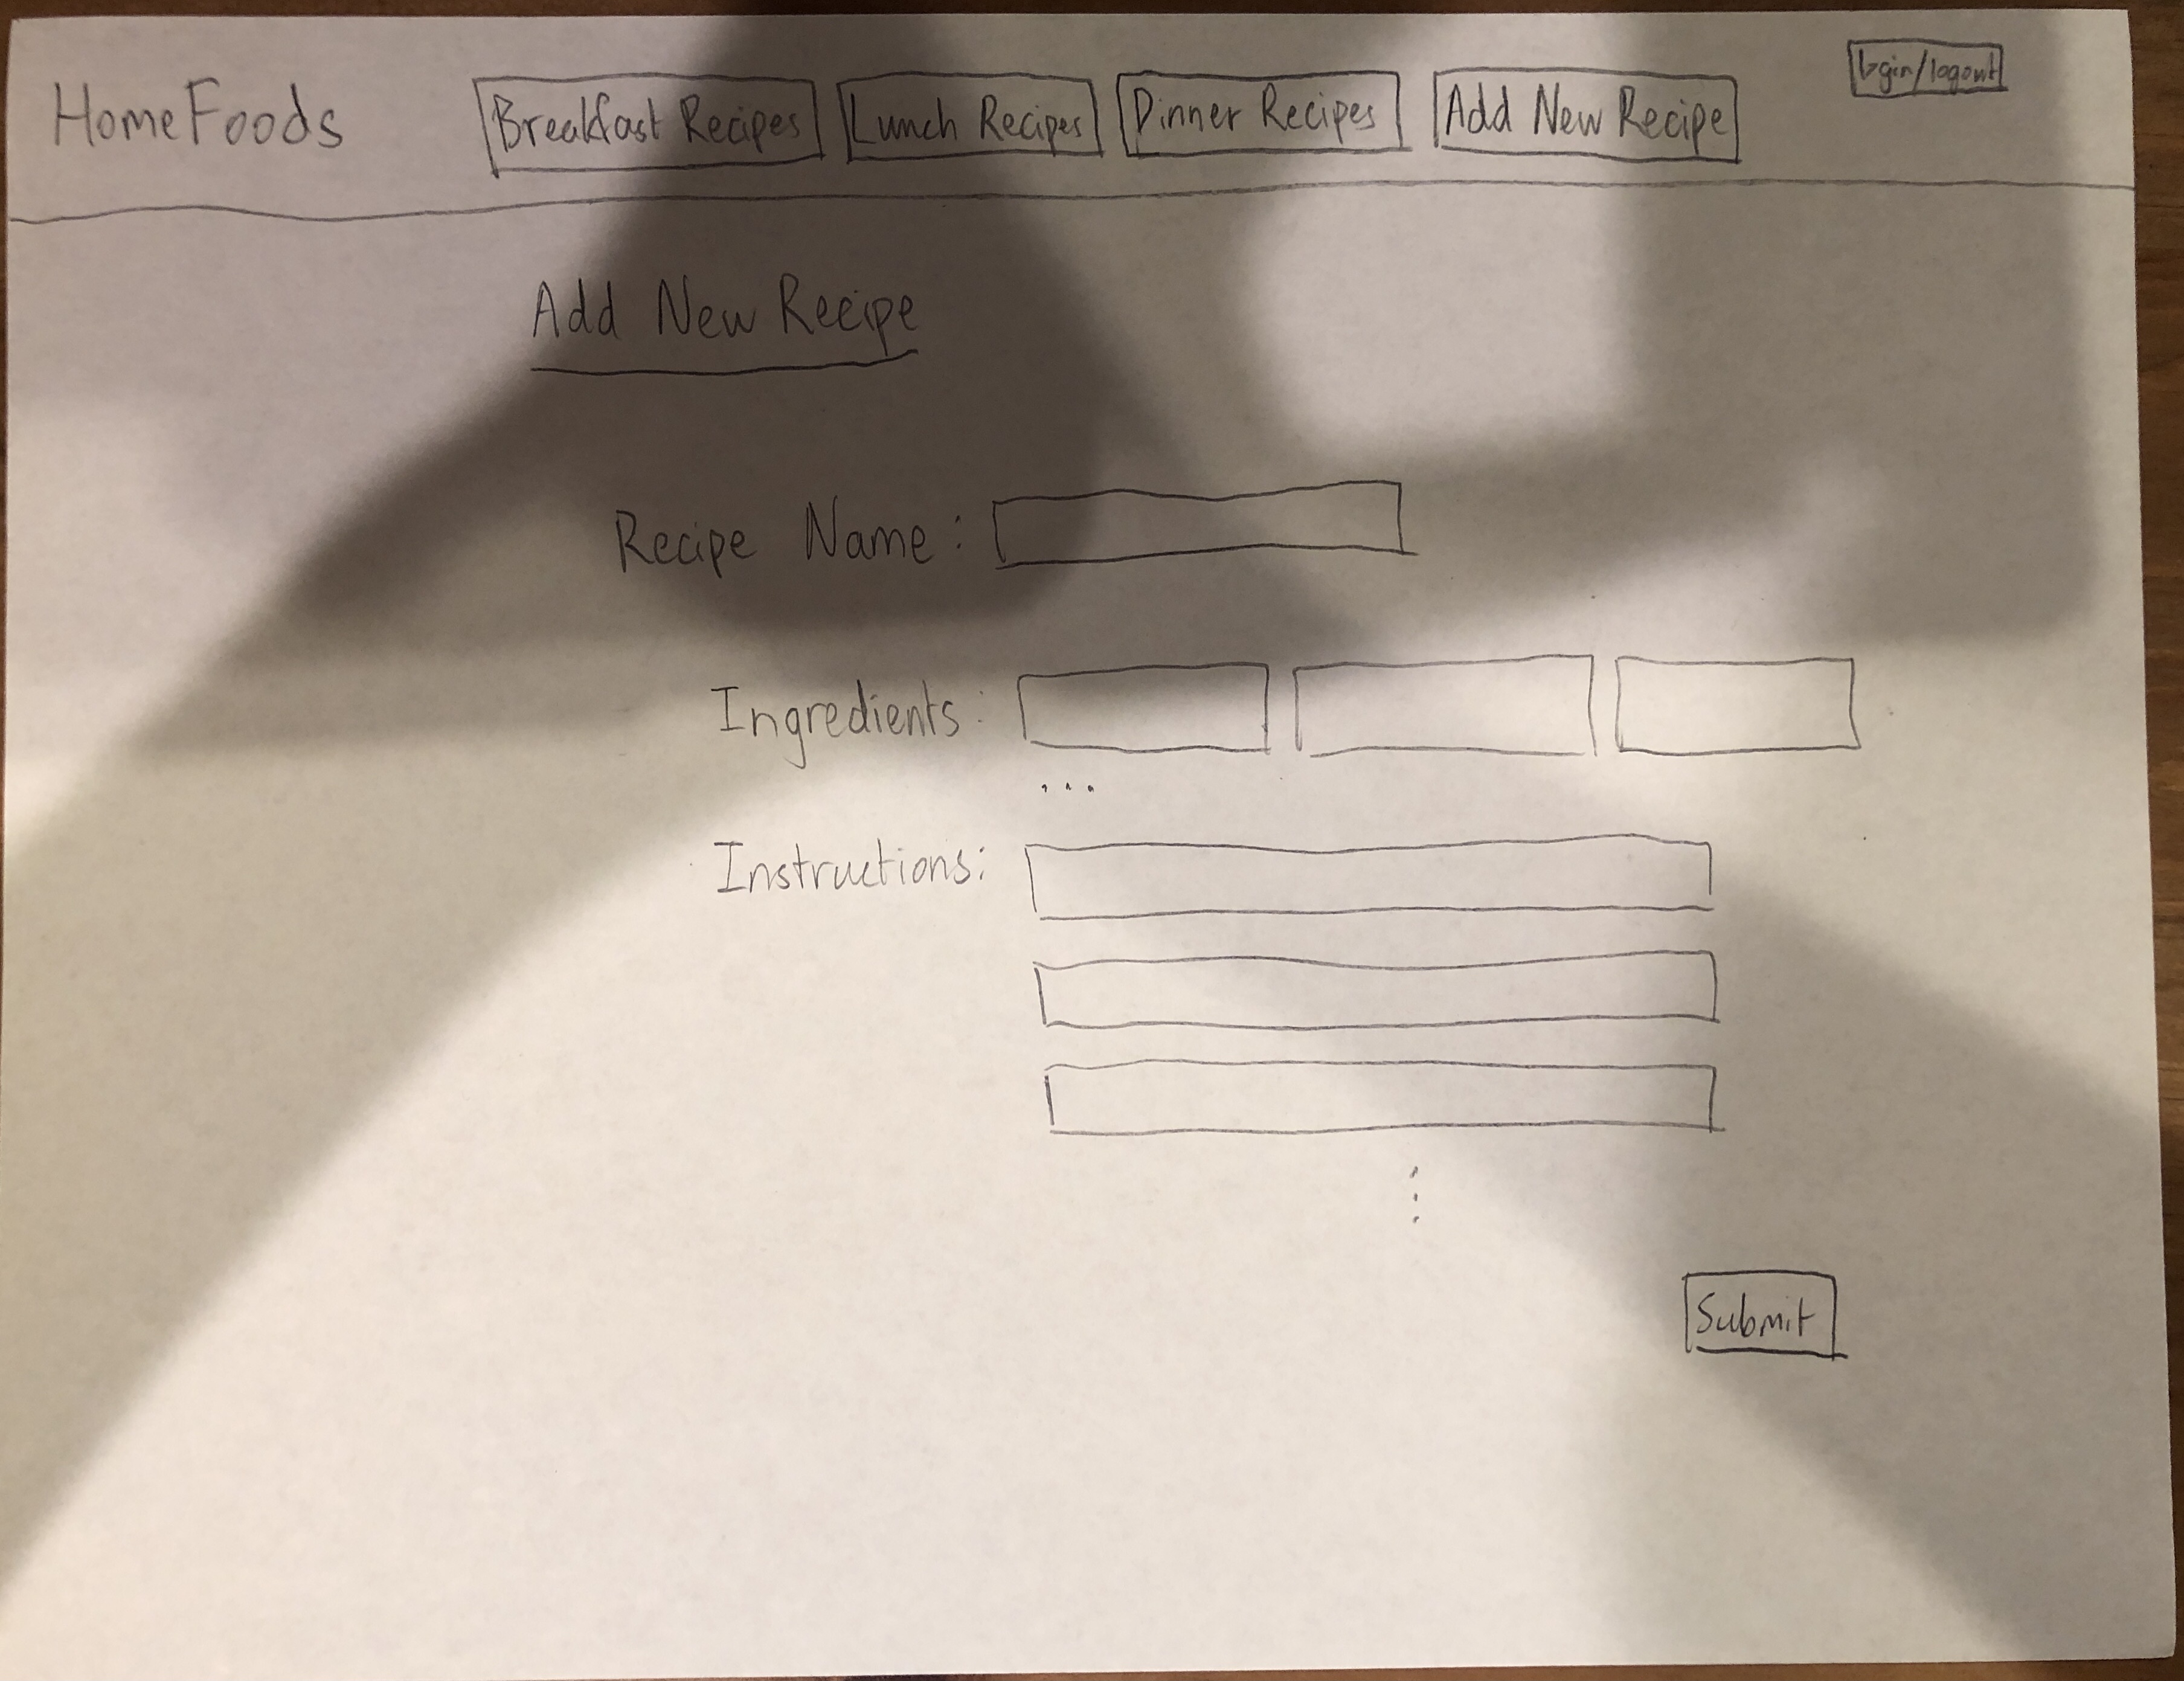 HomeFoods
Breakfast Recipes
Lunch Recipes
Dinner Recipes
Add New Recipe
login/logout
Add New Recipe
Recipe Name:
Ingredients:
...
Instructions:
Submit